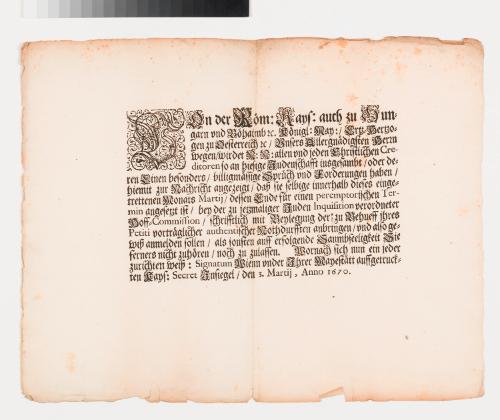 VOn der Röm: Kays: auch zu Hun-
garn vnd Böhaimb ꝛc. Königl: May: / Ertz-Hertzo-
gen zu Oesterreich ꝛc / Vnsers Allergnädigsten Herrn
wegen / wirdet N: N: allen vnd jeden Christlichen Cre-
ditoren so an hiesige Judenschafft insgesambt / oder de-
ren Einen besonders / billigmässige Sprüch vnd Forderungen haben /
hiemit zur Nachricht angezeigt / daß sie selbige innerhalb dieses einge-
trettenen Monats Martij / dessen Ende für einen peremptorischen Ter-
min angesetzt ist / bey der zu jetzmaliger Juden Inquisition verordneter
Hoff-Commission / schrifftlich mit Beylegung der: zu Behueff ihres
Petiti vorträglicher authentischer Nothdurfften anbringen / vnd also ge-
wiß anmelden sollen / als jonsten auff erfolgende Saumbseeligkeit Sie
ferners nicht zuhören / noch zu zulassen. Wornach sich nun ein jeder
zurichten weiß: Signatum Wienn vnder Ihrer Mayestätt auffgetruck-
ten Kays: Secret Insiegel / den 3. Martij, Anno 1670.